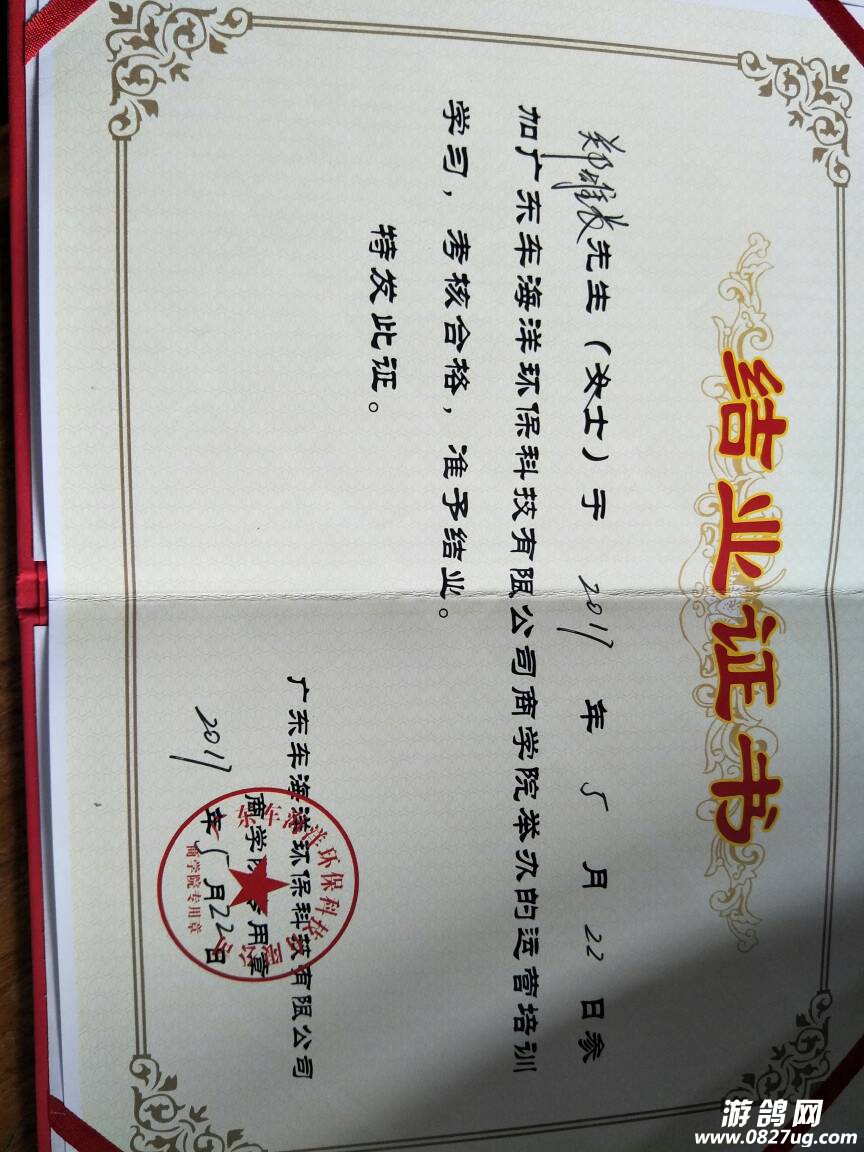 结业证书
郑雄长先生（女士）于 2017 年 5 月 22 日参
加广东车海洋环保科技有限公司商学院举办的运营培训
学习，考核合格，准予结业。
特发此证。
广东车海洋环保科技有限公司
商学院专用章
2017 年 5 月 22 日
广东车海洋环保科技有限公司
商学院专用章
游鸽网
www.0827ug.com